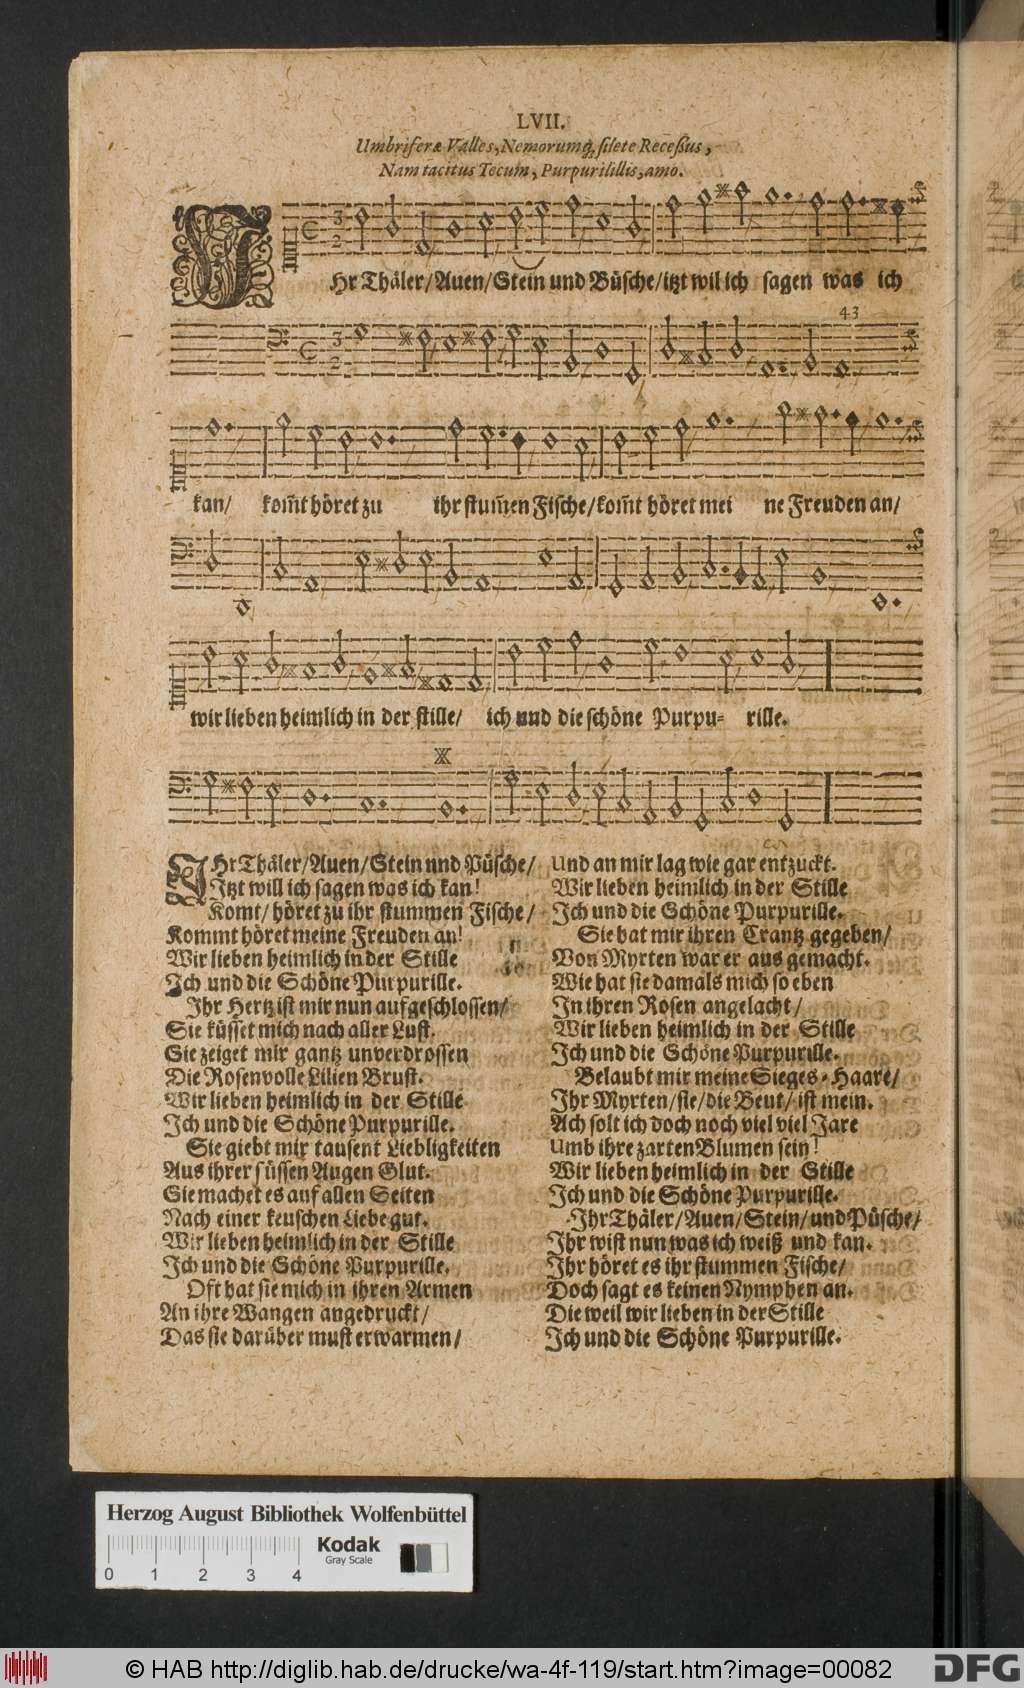 LVII.
Umbriferæ Valles, Nemorumq́, silete Receßus,
Nam tacitus Tecum, Purpurilillis, amo.
IHr Thäler/Auen/Stein und Büsche/itzt wil ich sagen was ich
43
kan/ kom̃t höret zu ihr stum̃en Fische/kom̃t höret mei ne Freuden an/
wir lieben heimlich in der stille/ ich und die schöne Purpu- rille.
IHr Thäler/Auen/Stein nnd Püsche/
Itzt will ich sagen was ich kan!
Komt/ höret zu ihr stummen Fische/
Kommt höret meine Freuden an!
Wir lieben heimlich in der Stille
Ich und die Schöne Purpurille.
Ihr Hertz ist mir nun aufgeschlossen/
Sie küsset mich nach aller Lust.
Sie zeiget mir gantz unverdrossen
Die Rosenvolle Lilien Brust.
Wir lieben heimlich in der Stille
Ich und die Schöne Purpurille.
Sie giebt mir tausent Liebligkeiten
Aus ihrer süssen Augen Glut.
Sie machet es auf allen Seiten
Nach einer keuschen Liebe gut.
Wir lieben heimlich in der Stille
Ich und die Schöne Purpurille.
Oft hat sie mich in ihren Armen
An ihre Wangen angedruckt/
Das sie darüber must erwarmen/
Und an mir lag wie gar entzuckt.
Wir lieben heimlich in der Stille
Ich und die Schöne Purpurille.
Sie hat mir ihren Crantz gegeben/
Von Myrten war er aus gemacht.
Wie hat sie damals mich so eben
In ihren Rosen angelacht/
Wir lieben heimlich in der Stille
Ich und die Schöne Purpurille.
Belaubt mir meine Sieges-Haare/
Ihr Myrten/sie/die Beut/ ist mein.
Ach solt ich doch noch viel viel Jare
Umb ihre zarten Blumen sein!
Wir lieben heimlich in der Stille
Ich und die Schöne Purpurille.
Ihr Thäler/Auen/Stein/und Püsche/
Ihr wist nun was ich weiß und kan.
Ihr höret es ihr stummen Fische/
Doch sagt es keinen Nymphen an.
Die weil wir lieben in der Stille
Ich und die Schöne Purpurille.
Herzog August Bibliothek Wolfenbüttel
Kodak
Gray Scale
0 1 2 3 4
© HAB http://diglib.hab.de/drucke/wa-4f-119/start.htm?image=00082
DFG